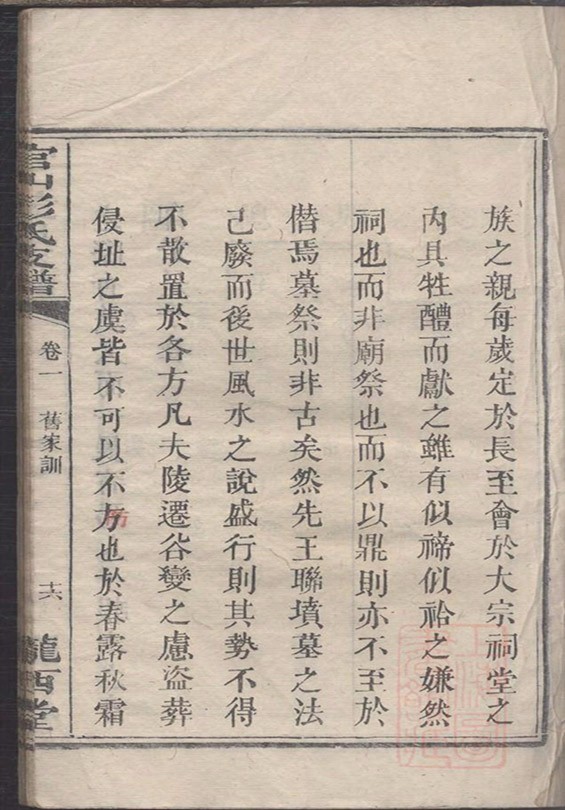 族之親每歲定於長至會於大宗祠堂之
內具牲醴而獻之雖有似禘似祫之嫌然
祠也而非廟祭也而不以鼎則亦不至於
僭焉墓祭則非古矣然先王聯墳墓之法
己廢而後世風水之說盛行則其勢不得
不散置於各方凡夫陵遷谷變之慮盜葬
侵址之虞皆不可以不方也於春露秋霜
防
官山彭氏支譜
卷一
舊家訓
十六
隴西堂